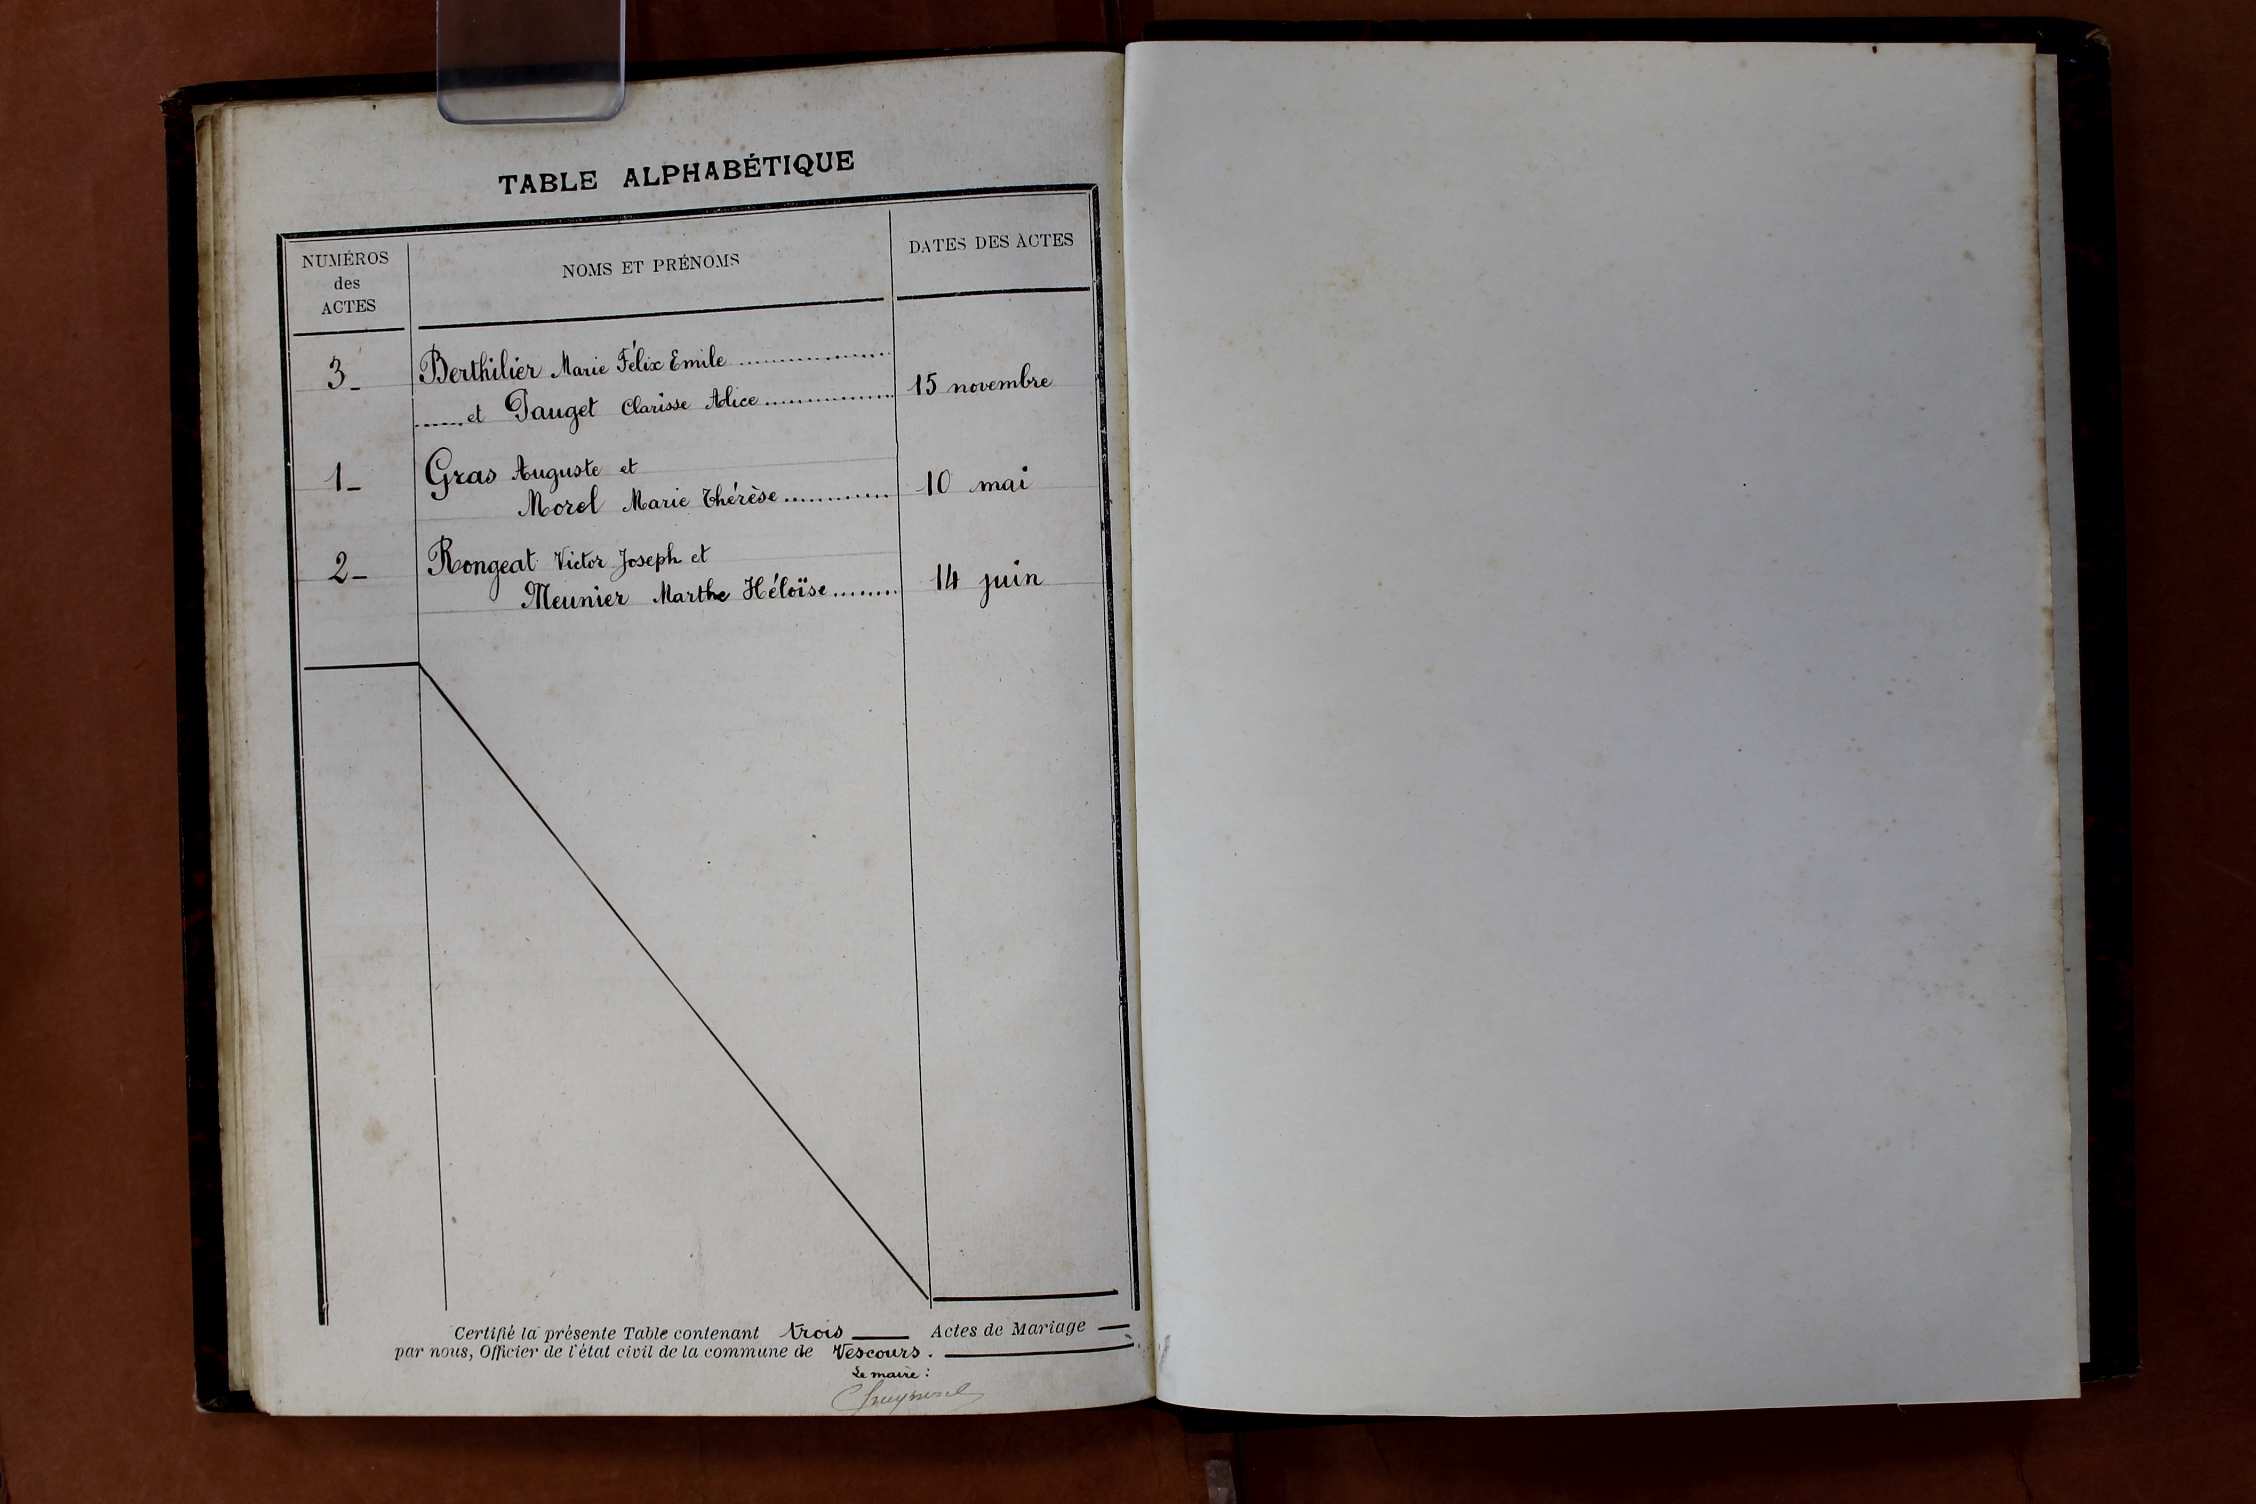 TABLE ALPHABÉTIQUE
NUMÉROS
des
ACTES
NOMS ET PRÉNOMS
DATES DES ACTES
3_
Berthilier Marie Félix Emile
et Pauget Clarisse Alice
15 novembre
1_
Gras Auguste et
Morel Marie Thérèse
10 mai
2_
Rongeat Victor Joseph et
Meunier Marthe Héloïse
14 juin
Certifié la présente Table contenant trois Actes de Mariage
par nous, Officier de l'état civil de la commune de Vescours.
Le maire :